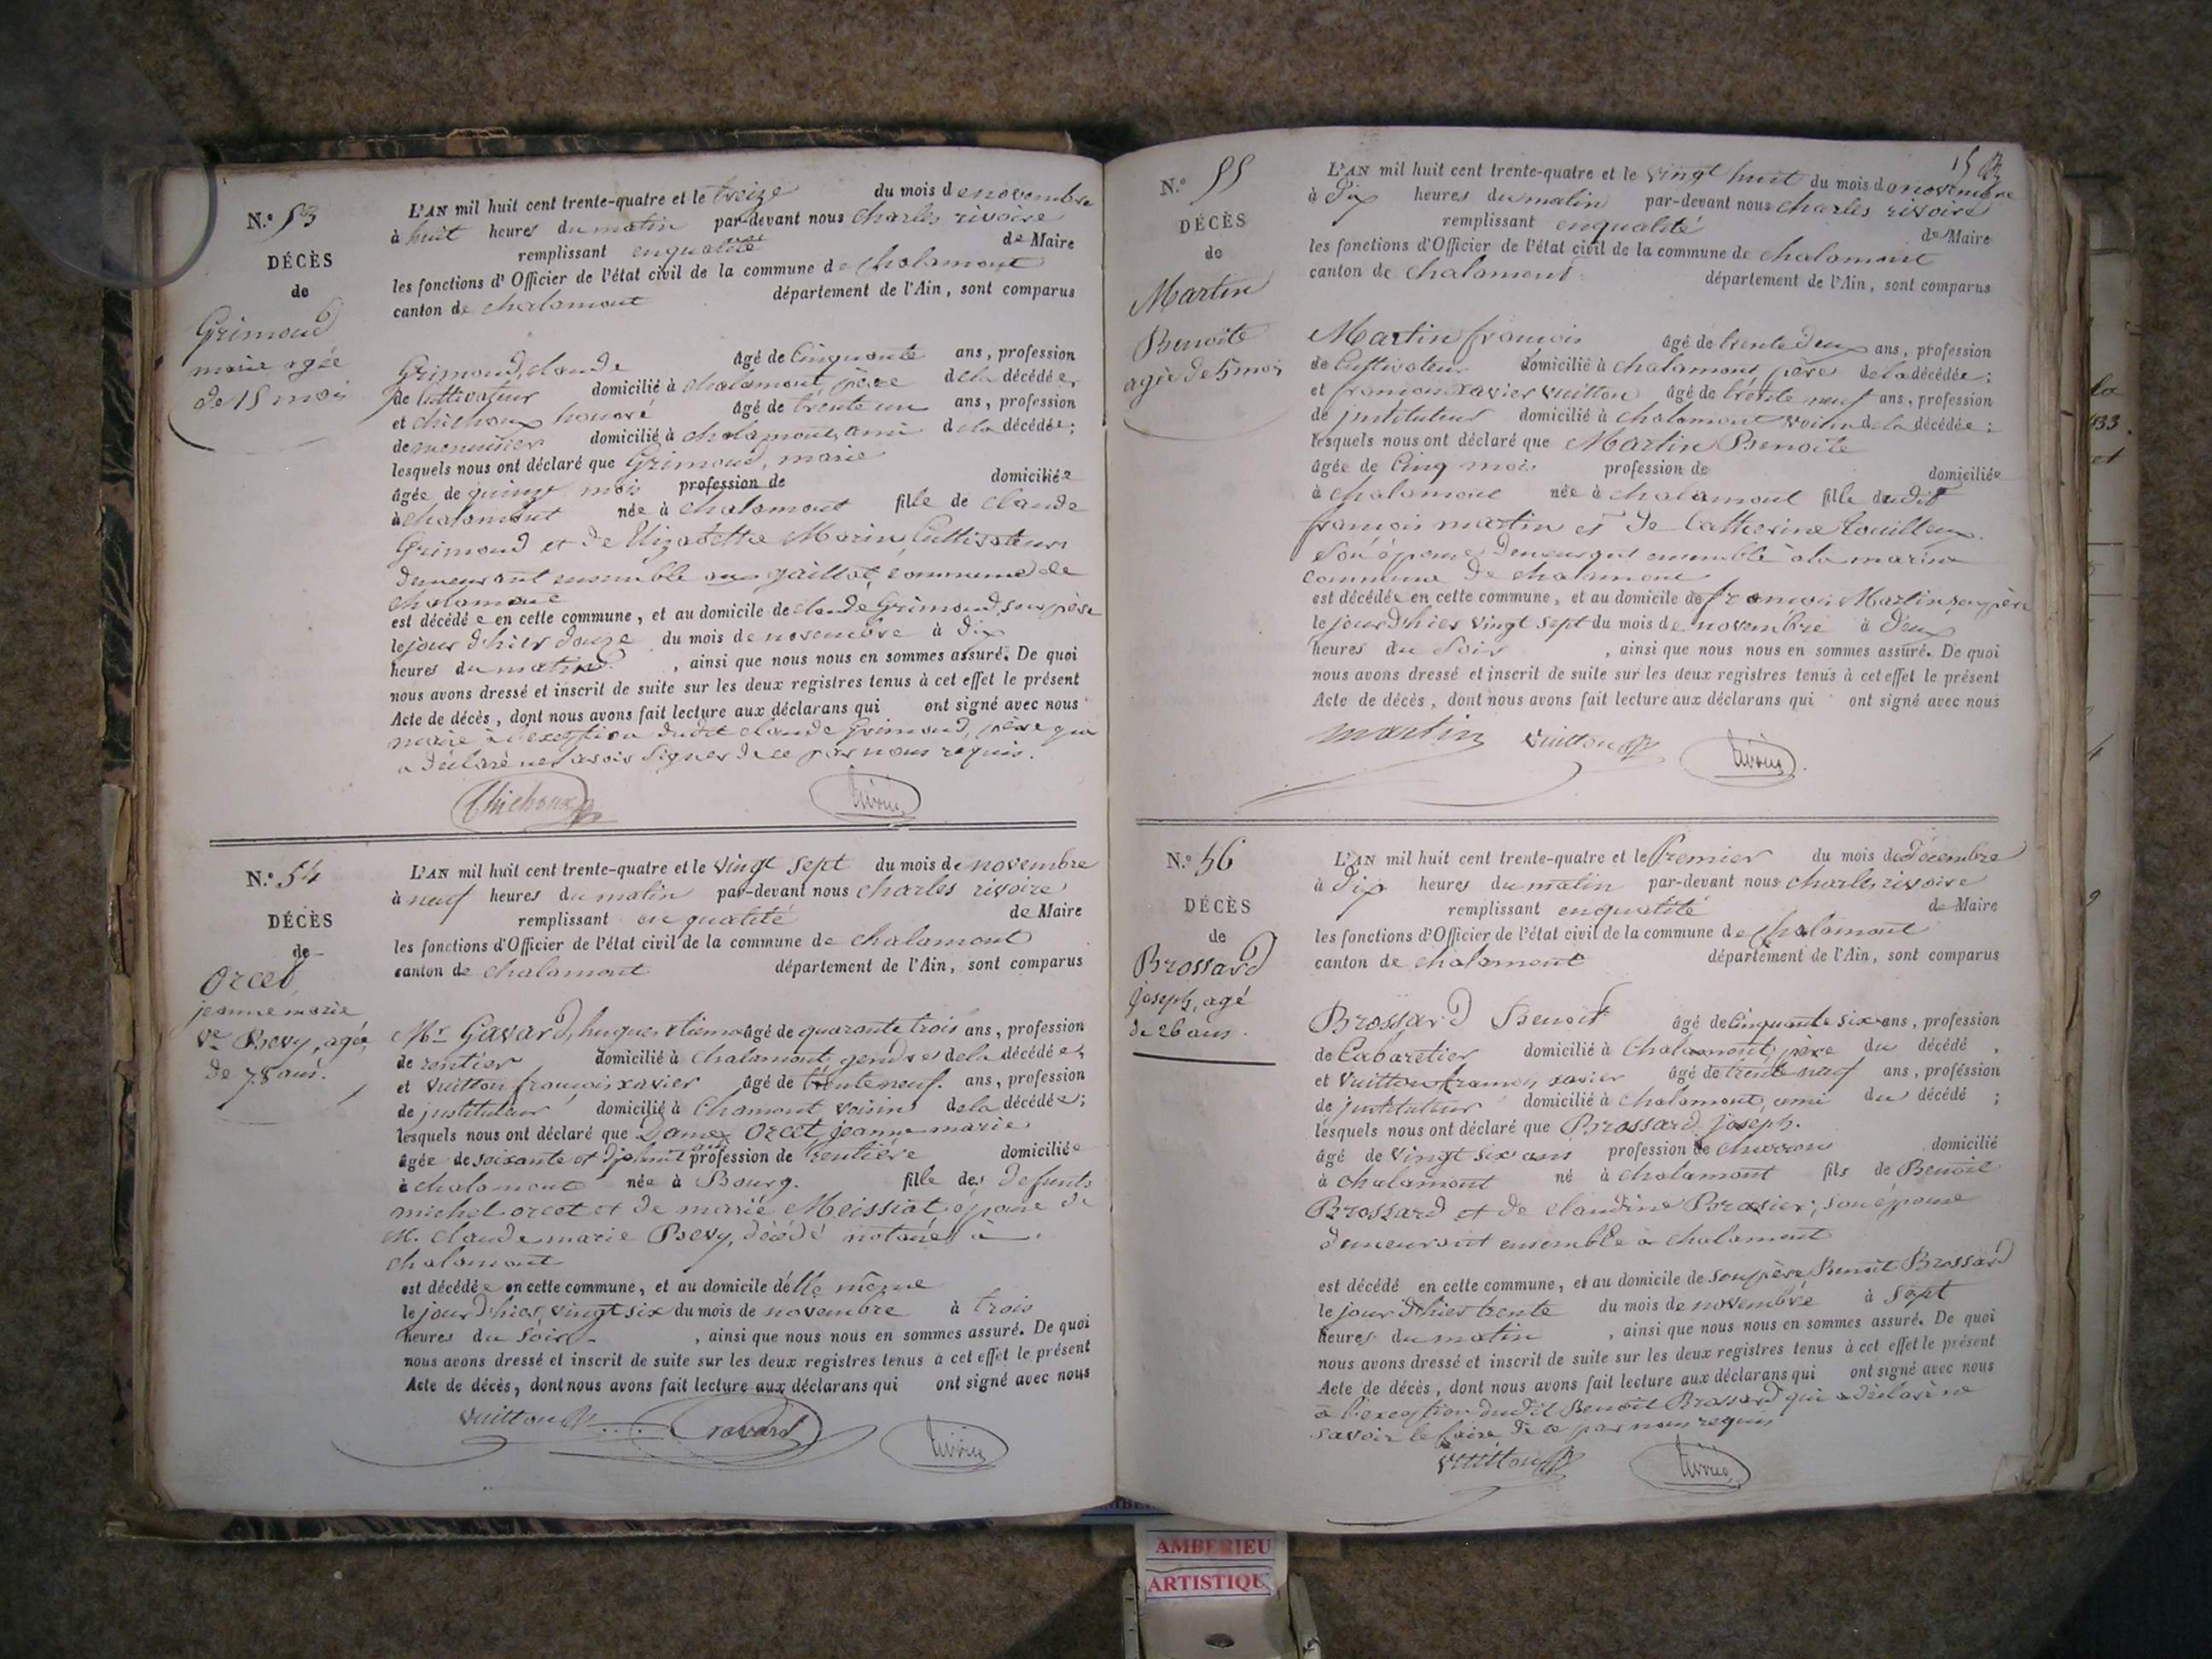 N.° 53
DÉCÈS
de
Grimoud
marie agée
de 15 mois
L'AN mil huit cent trente-quatre et le treize du mois de novembre
à huit heures du matin par-devant nous charles rivoire
remplissant en qualité de Maire
les fonctions d'Officier de l'état civil de la commune de chalamont
canton de chalamont département de l'Ain, sont comparus
Grimoud, claude âgé de Cinquante ans, profession
de Cultivateur domicilié à chalamont, père de la décédée,
et chichoux honoré âgé de trente un ans, profession
de menuisier domicilié à chalamont, ami de la décédée;
lesquels nous ont déclaré que Grimoud, marie
âgée de quinze mois profession de domiciliée
à chalamont née à chalamont fille de claude
Grimoud et de Elizabeth Morin, Cultivateurs
demeurant ensemble aux gaillot, commune de
chalamont
est décédée en cette commune, et au domicile de claude Grimoud, son père
le jour d'hier douze du mois de novembre à dix
heures du matin, ainsi que nous nous en sommes assuré. De quoi
nous avons dressé et inscrit de suite sur les deux registres tenus à cet effet le présent
Acte de décès, dont nous avons fait lecture aux déclarans qui ont signé avec nous
maire à l'exception dudit claude Grimoud, père qui
a déclaré ne savoir signer de ce par nous requis.
Chichoux rivoire
N.° 54
DÉCÈS
de
Orcet
jeanne marie
Ve Bevy, agée
de 78 ans.
L'AN mil huit cent trente-quatre et le vingt sept du mois de novembre
à neuf heures du matin par-devant nous charles rivoire
remplissant en qualité de Maire
les fonctions d'Officier de l'état civil de la commune de chalamont
canton de chalamont département de l'Ain, sont comparus
Mr Gavard, hugues étienne âgé de quarante trois ans, profession
de rentier domicilié à chalamont gendre de la décédée,
et Vuitton françois xavier âgé de trente neuf ans, profession
de jnstituteur domicilié à Chamont voisin de la décédée;
lesquels nous ont déclaré que Dame Orcet jeanne marie
âgée de soixante et dix huit ans profession de rentière domiciliée
à chalamont née à Bourg. fille des defunts
michel orcet et de marie Meissiat épouse de
M. claude marie Bevy, décédé notaire à
chalamont
est décédée en cette commune, et au domicile d'elle même
le jour d'hier, vingt six du mois de novembre à trois
heures du soir, ainsi que nous nous en sommes assuré. De quoi
nous avons dressé et inscrit de suite sur les deux registres tenus à cet effet le présent
Acte de décès, dont nous avons fait lecture aux déclarans qui ont signé avec nous
Vuitton Gavard rivoire
15
N.° 55
DÉCÈS
de
Martin
Benoite
agée de 5 mois
L'AN mil huit cent trente-quatre et le vingt huit du mois de novembre
à dix heures du matin par-devant nous charles rivoire
remplissant en qualité de Maire
les fonctions d'Officier de l'état civil de la commune de chalamont
canton de chalamont département de l'Ain, sont comparus
Martin francois âgé de trente deux ans, profession
de Cultivateur domicilié à chalamont, père de la décédée;
et françois xavier vuitton âgé de trente neuf ans, profession
de jnstituteur domicilié à chalamont voisin de la décédée;
lesquels nous ont déclaré que Martin Benoite
âgée de Cinq mois profession de domiciliée
à chalamont née à chalamont fille dudit
françois martin et de Catherine
son épouse demeurant ensemble à la marine
commune de chalamont
est décédée en cette commune, et au domicile de francois Martin son père
le jour d'hier vingt sept du mois de novembre à deux
heures du soir, ainsi que nous nous en sommes assuré. De quoi
nous avons dressé et inscrit de suite sur les deux registres tenus à cet effet le présent
Acte de décès, dont nous avons fait lecture aux déclarans qui ont signé avec nous
martin vuitton rivoire
N.° 56
DÉCÈS
de
Brossard
joseph, agé
de 26 ans.
L'AN mil huit cent trente-quatre et le Premier du mois de Décembre
à dix heures du matin par-devant nous charles rivoire
remplissant en qualité de Maire
les fonctions d'Officier de l'état civil de la commune de chalamont
canton de chalamont département de l'Ain, sont comparus
Brossard Benoit âgé de Cinquante six ans, profession
de Cabaretier domicilié à Chalamont, père du décédé,
et Vuitton francois xavier âgé de trente neuf ans, profession
de jnstituteur domicilié à chalamont, ami du décédé;
lesquels nous ont déclaré que Brossard, joseph.
âgé de vingt six ans profession de charron domicilié
à chalamont né à chalamont fils de Benoit
Brossard et de claudine Brasier; son épouse
demeurant ensemble à chalamont
est décédé en cette commune, et au domicile de son père, Benoit Brossard
le jour d'hier trente du mois de novembre à sept
heures du matin, ainsi que nous nous en sommes assuré. De quoi
nous avons dressé et inscrit de suite sur les deux registres tenus à cet effet le présent
Acte de décès, dont nous avons fait lecture aux déclarans qui ont signé avec nous
à l'exception dudit Benoit Brossard qui a déclaré ne
savoir le faire de ce par nous requis
vuitton rivoire
AMBERIEU
ARTISTIQUE